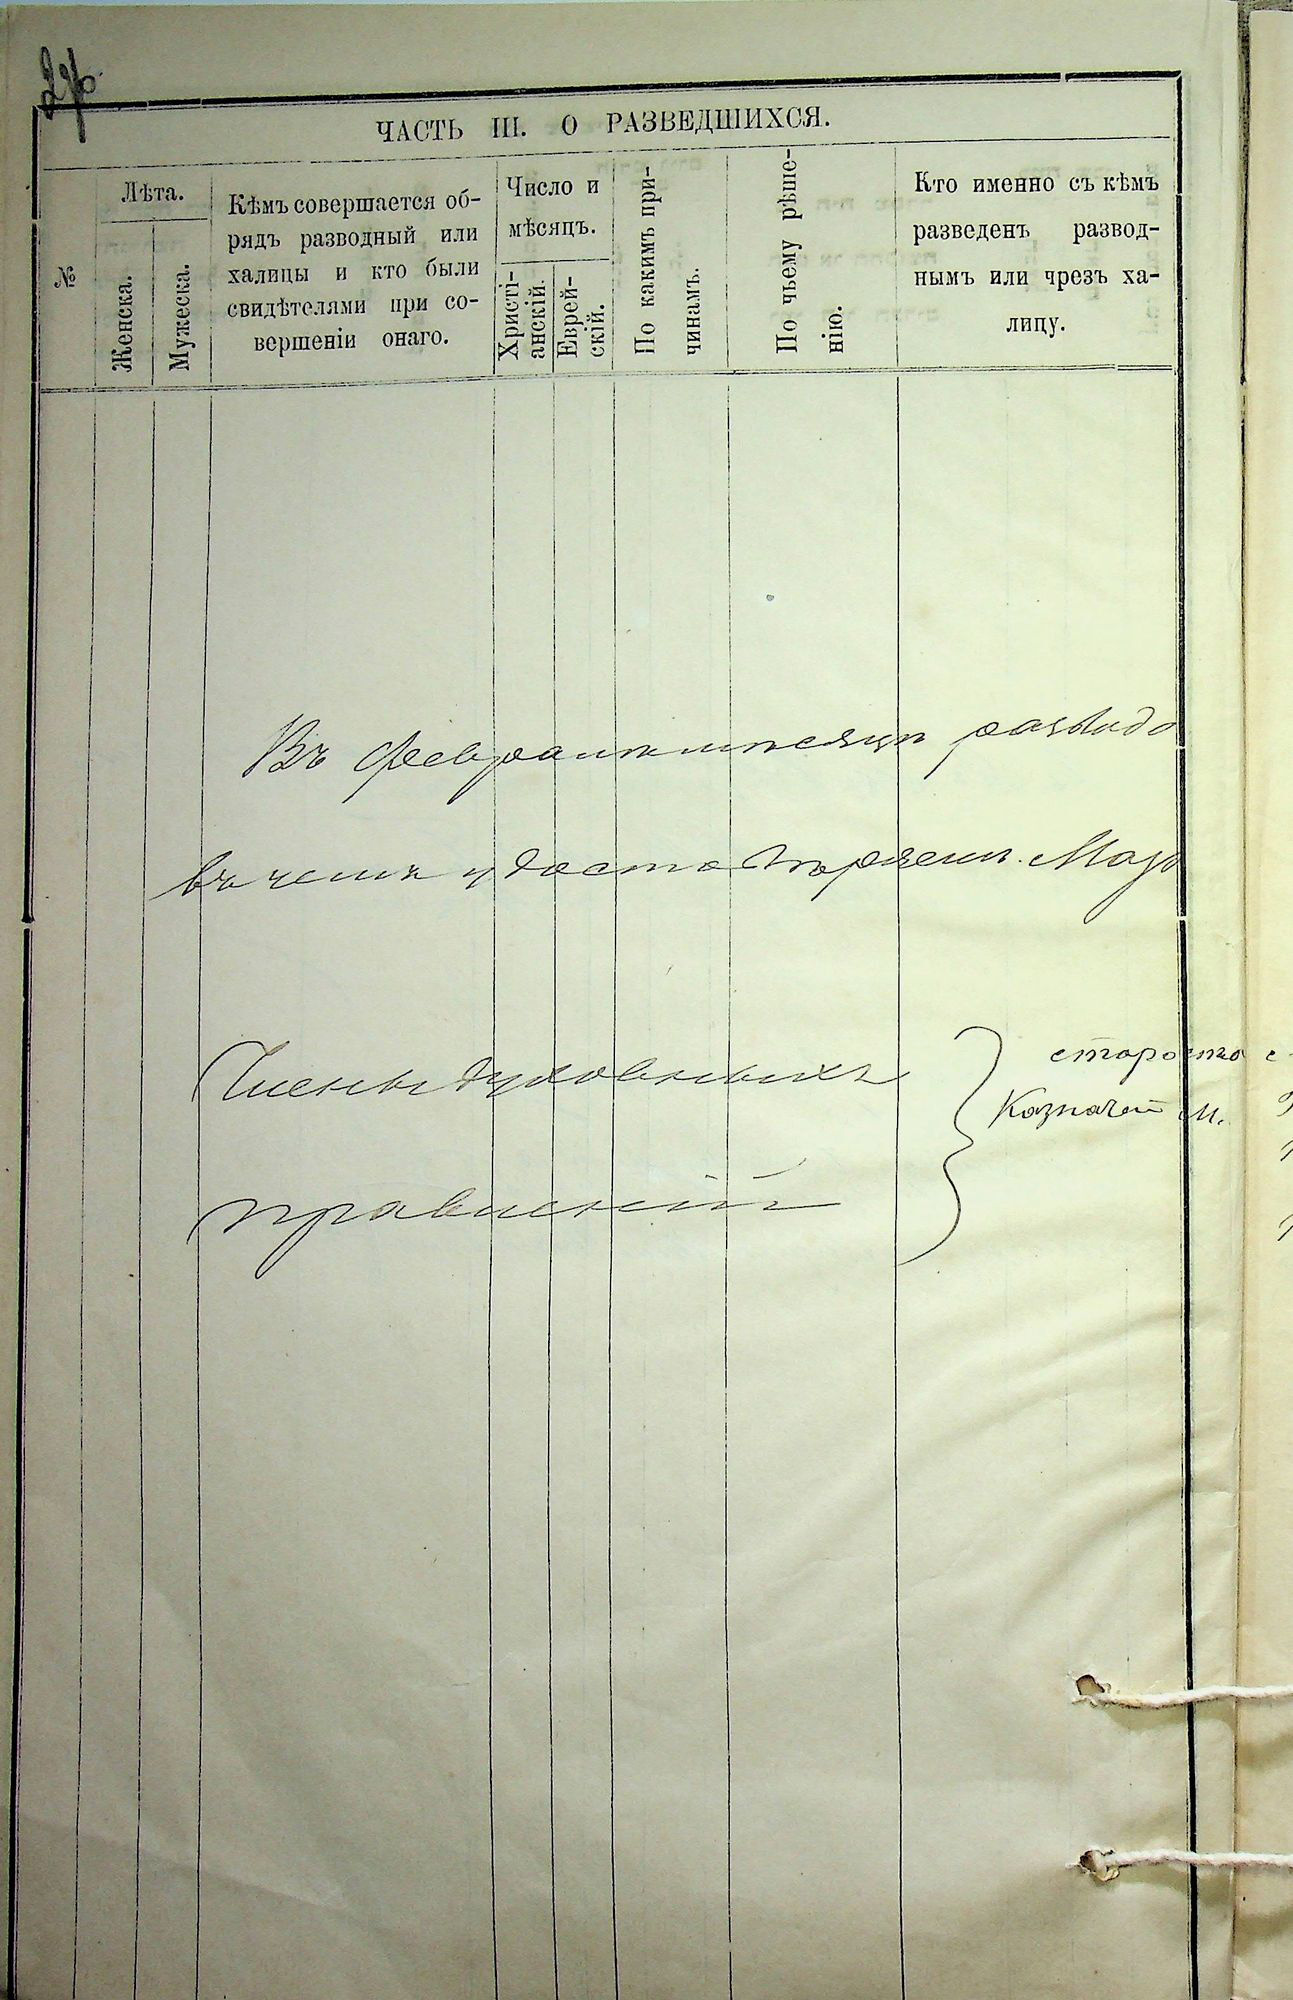 ЧАСТЬ III. О РАЗВЕДШИХСЯ.
№
Лѣта.
Женска.
Мужеска.
Кѣмъ совершается об-
рядъ разводный или
халицы и кто были
свидѣтелями при со-
вершеніи онаго.
Число и
мѣсяцъ.
Христі-
анскій.
Еврей-
скій.
По какимъ при-
чинамъ.
По чьему рѣше-
нію.
Кто именно съ кѣмъ
разведенъ развод-
нымъ или чрезъ ха-
лицу.
Въ февралѣ мѣсяцѣ развидо
въ чемъ удостовѣряемъ. Мар
Члены духовныхъ
правленій
староста с
Казначей М.